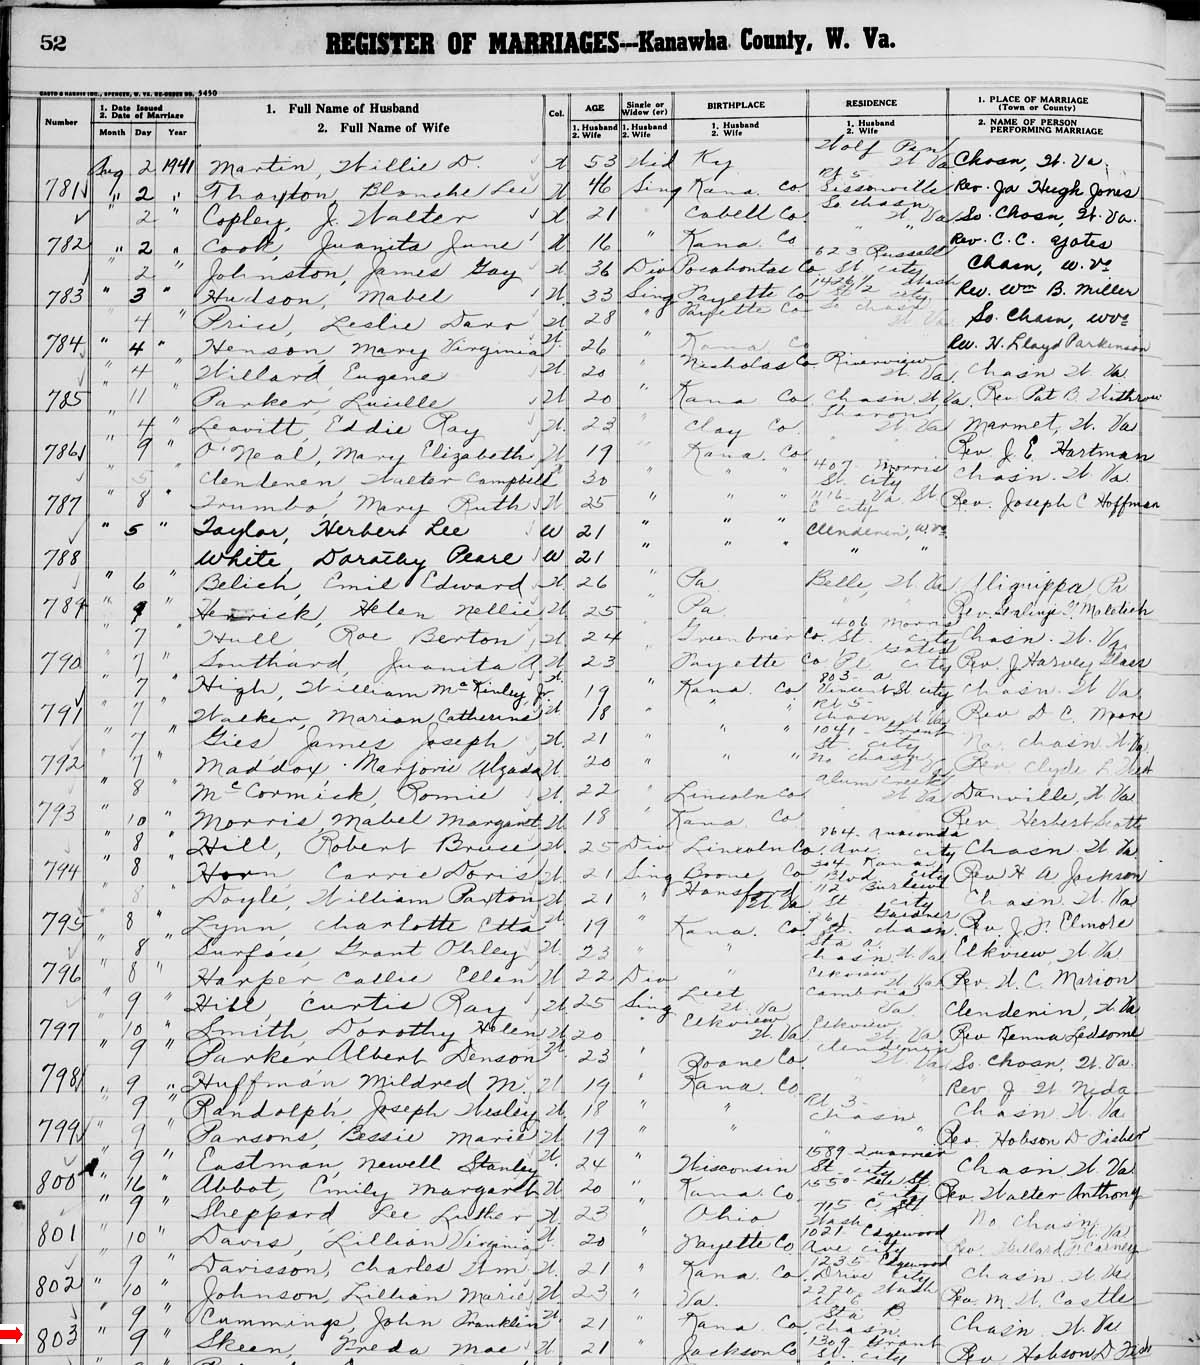 52
REGISTER OF MARRIAGES---Kanawha County, W. Va.
CASTO & HARRIS INC., SPENCER, W. VA. RE-ORDER NO. 5450
Number
1. Date Issued
2. Date of Marriage
Month Day Year
1. Full Name of Husband
2. Full Name of Wife
Col.
AGE
1. Husband
2. Wife
Single or
Widow (er)
1. Husband
2. Wife
BIRTHPLACE
1. Husband
2. Wife
RESIDENCE
1. Husband
2. Wife
1. PLACE OF MARRIAGE
(Town or County)
2. NAME OF PERSON
PERFORMING MARRIAGE
Aug 2 1941 Martin, Willie D. W 53 Wid Ky Wolf Pen W Va Chasn, W. Va.
781 " 2 " Thaxton, Blanche Lee W 46 Sing Kana. Co Rt 5- Sissonville Rev. Ja Hugh Jones
2 Copley, J. Walter W 21 " Cabell Co. So Chasn W Va So. Chasn, W. Va.
782 " 2 " Cook, Juanita June W 16 " Kana. Co " " Rev. C. C. Yates
2 " Johnston, James Gay W. 36 Div Pocahontas Co 623 Russell St. city Chasn, W. Va
783 " 3 " Hudson, Mabel W. 33 Sing Fayette Co 1426 1/2 Wash St city Rev. Wm B. Miller
4 " Price, Leslie Darr W 28 " Fayette Co So Chasn W. Va So. Chasn, W Va
784 " 4 " Henson Mary Virginia W. 26 " Kana Co Rev. H. Lloyd Parkinson
" 4 Willard, Eugene W 20 " Nicholas Co Riverview W Va Chasn W Va
785 11 Parker, Lucille W 20 " Kana Co Chasn W Va Rev Pat B. Withrow
4 " Leavitt, Eddie Ray W. 23 " Clay Co. Sharon W Va Marmet, W. Va
786 9 " O'Neal, Mary Elizabeth W 19 " Kana. Co. " " Rev J. E. Hartman
5 Clendenen Walter Campbell 30 " " " 407- Morris St. city Chasn. W Va
787 " 8 " Trumbo, Mary Ruth W 25 " " " 1116- Va St E city Rev. Joseph C Hoffman
" 5 " Taylor, Herbert Lee W 21 " " " Clendenin, W. Va
788 White, Dorothy Pearl W 21 " " " " "
" 6 " Belich, Emil Edward W 26 " Pa. Belle, W. Va Aliquippa, Pa
789 " 9 " Herrick, Helen Nellie W. 25 Pa.
" 7 " Hull, Roe Berton W. 24 Greenbrier Co. 406 Morris St. city Chasn. W. Va
790 " 7 " Southard, Juanita A W 23 " Fayette Co Pl city Rev. J. Harvey Glass
" 7 High, William McKinley, Jr. W. 19 " Kana. Co 803- a Vincent St city Chasn. W Va
791 " 7 " Walker, Marian Catherine W 18 " " " Rt 5- Chasn W Va Rev D C. Moore
7 " Gies James Joseph W. 21 " " " 1041- Grant St. city No. Chasn W Va
792 " 7 " Maddox Marjorie Alzada W 20 " " " No Chasn W Va Rev. Clyde L
" 8 McCormick, Romie W. 22 " Lincoln Co Alum Creek W Va Danville, W Va
793 10 " Morris, Mabel Margaret W 18 " Kana. Co " Rev. Herbert Scott
" 8 Hill, Robert Bruce W. 25 Div Lincoln Co 864- Anaconda Ave. city Chasn W Va
794 " 8 " Horn Carrie Doris W 21 Sing Boone Co 304 Kana. Blvd city Rev H A Jackson
8 Doyle, William Paxton W 21 " Hansford W Va 112 Burlew St. city Chasn. W. Va
795 " 8 " Lynn, Charlotte Etta W. 19 " Kana. Co. Gardner St. Chasn Rev. J. F. Elmore
" 8 Surface, Grant Ohley W. 23 " " Sta a. Chasn W. Va Elkview, W Va
796 " 8 " Harper Callie Ellen W 22 Div " Elkview W Va Rev. W. C. Marion
" 9 Hill, Curtis Ray W. 25 Sing Leet W. Va Cambria Va. Clendenin, W. Va
797 " 10 " Smith, Dorothy Helen W 20 " Elkview W Va Elkview W. Va. Rev Kenna Ledsome
" 9 Parker Albert Denson W 23 " Boone Co. Clendenin W Va So. Chasn, W. Va.
798 " 9 " Huffman Mildred M. W 19 " Kana. Co " " Rev J. W Neda
9 " Randolph, Joseph Wesley W. 18 " " Rt 3- Chasn Chasn W. Va
799 9 " Parsons, Bessie Marie W 19 " " " " Rev. Hobson D Fisher
" 9 " Eastman, Newell Stanley W. 24 " Wisconsin 1589 Quarrier St. city Chasn. W. Va
800 16 " Abbot, Emily Margaret W 20 " Kana. Co 1550- Lee St. city Rev. Walter Anthony
" 9 Sheppard Lee Luther W. 23 Ohio 715 C. St. No Chasn W. Va
801 " 10 " Davis, Lillian Virginia W. 20 " Fayette Co Wash 1021- Edgewood Ave city Rev. Willard McCarney
9 Davisson, Charles Wm. W. 21 " Kana. Co. 1235- Edgewood Drive city Chasn. W. Va
802 " 10 " Johnson, Lillian Marie W 23 " Va. 2270 Wash St. E Rev. M. W. Castle
" 9 " Cummings, John Franklin W. 21 " Kana. Co Sta B Chasn. Chasn. W. Va
803 " 9 " Skeen, Freda Mae W 21 " Jackson Co 1309 Grant St. city Rev Hobson D